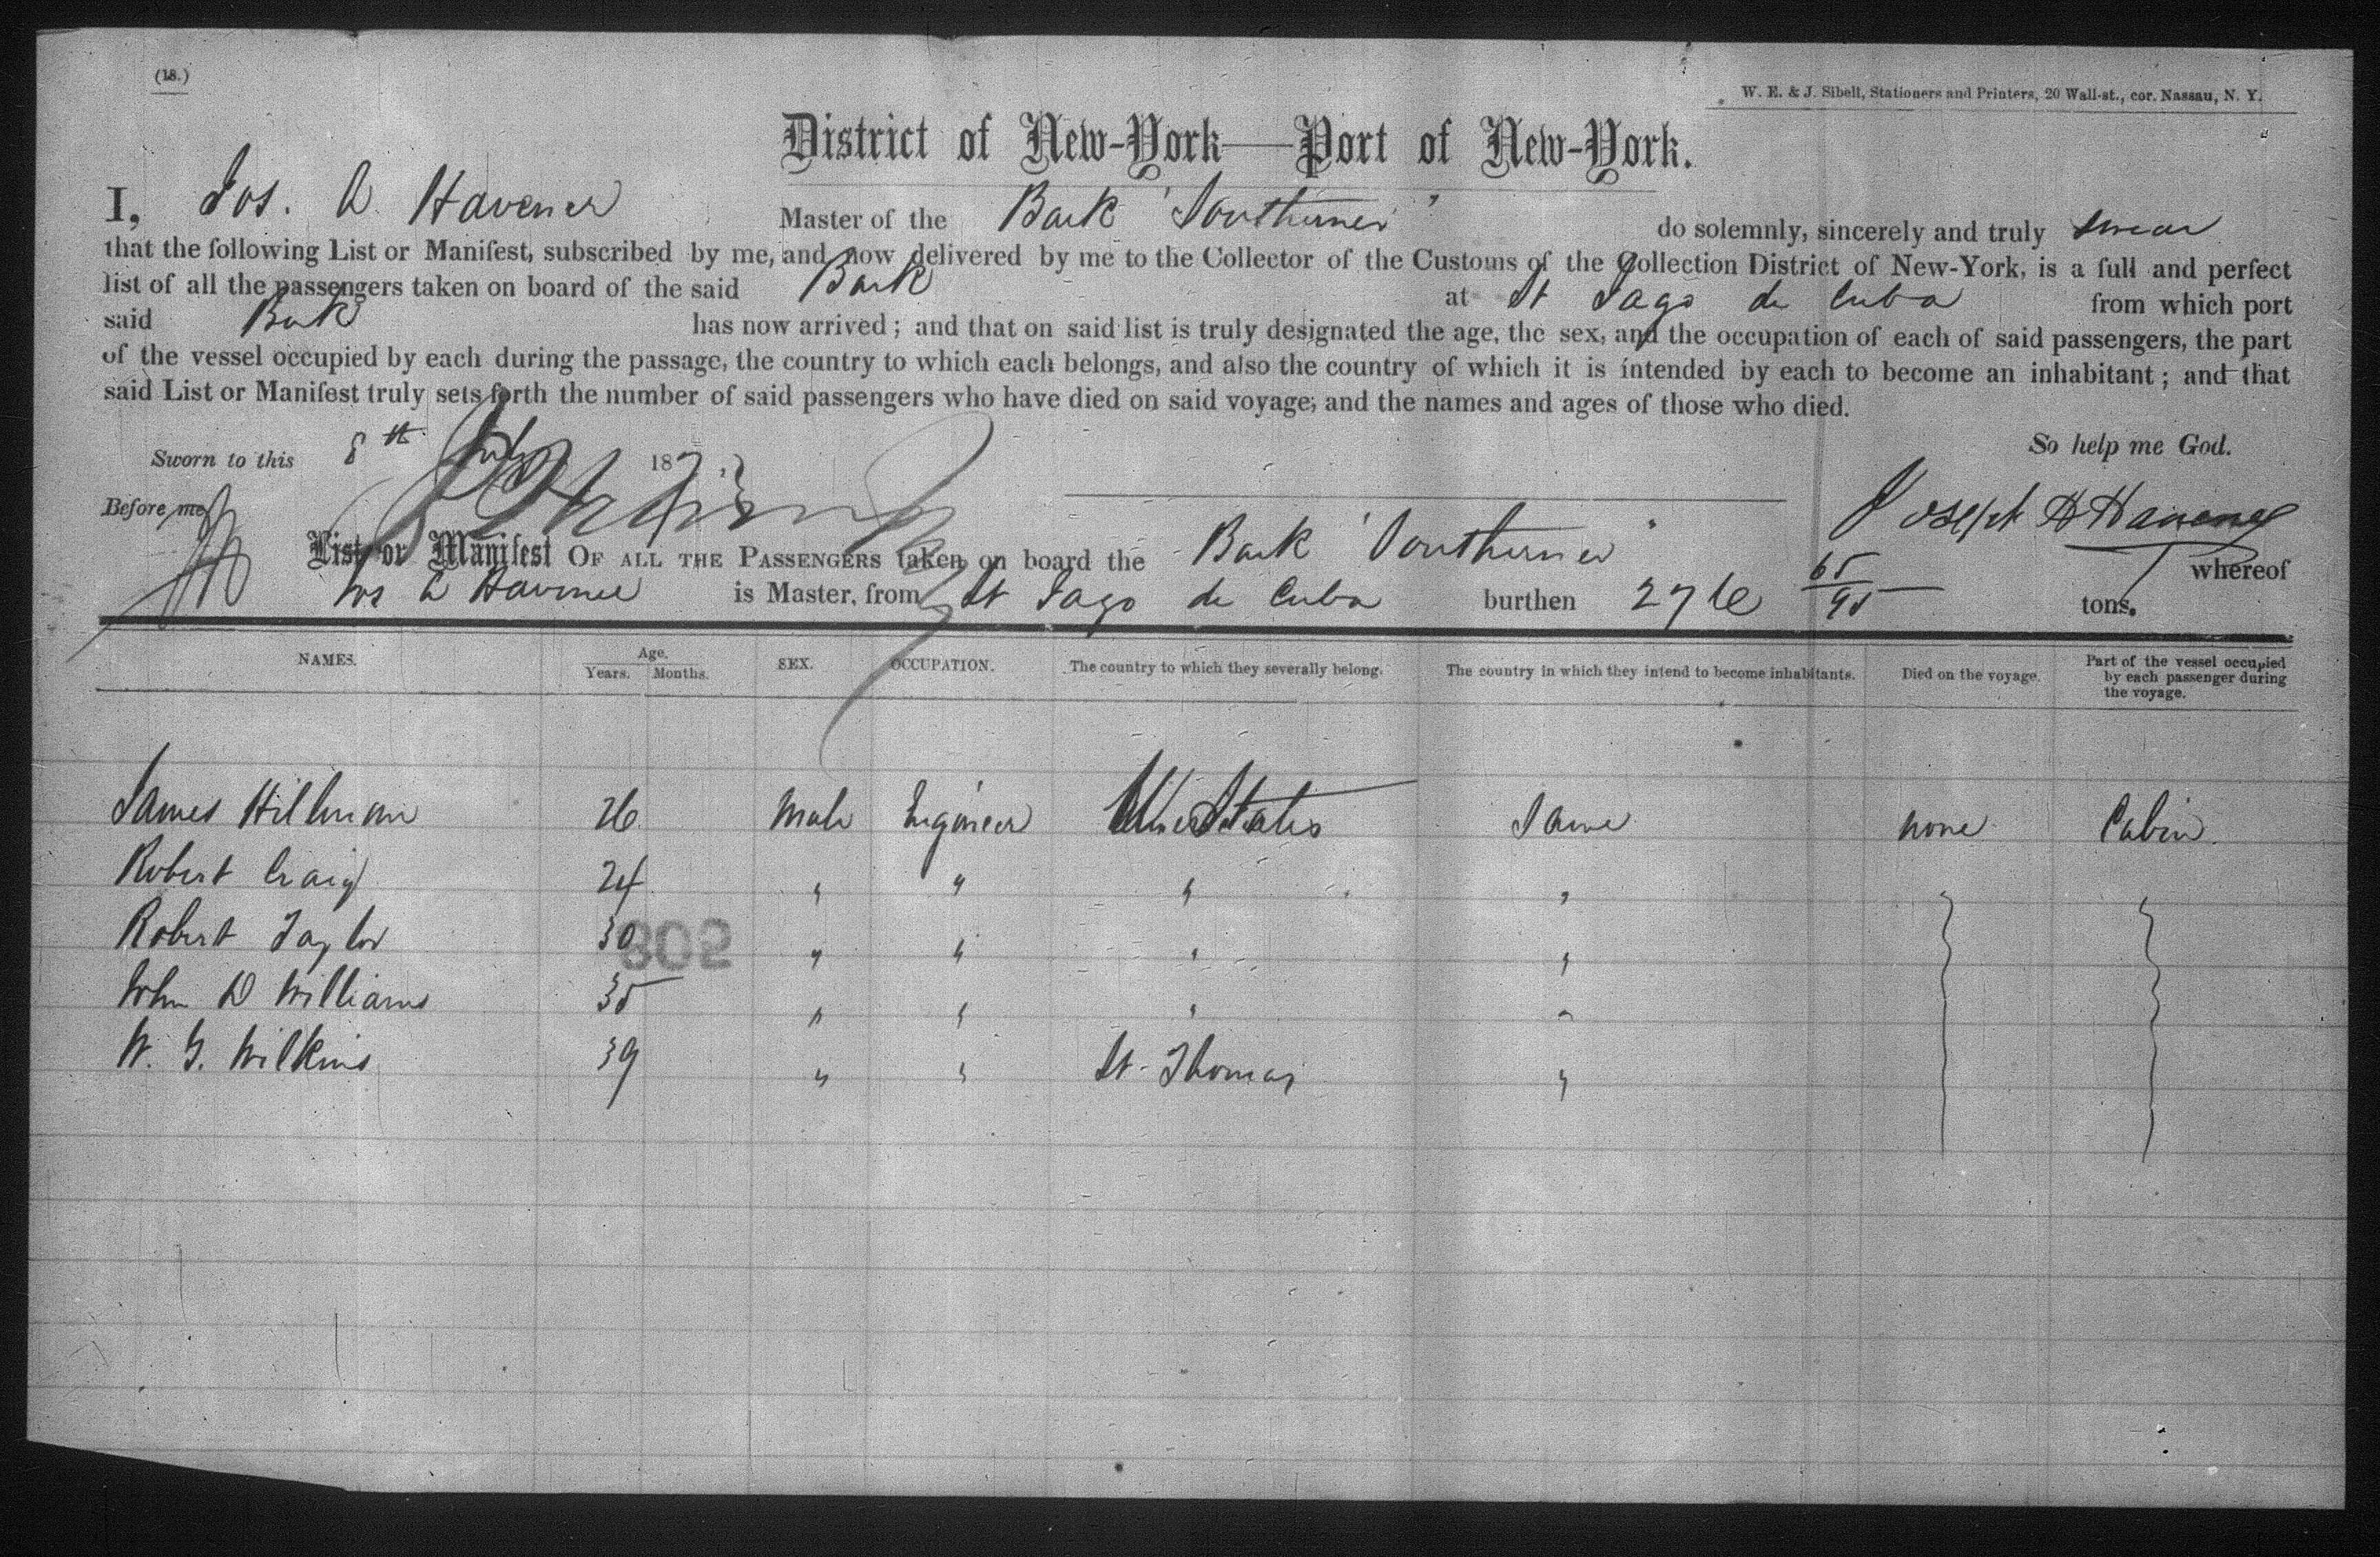 (18.)
W. E. & J. Sibell, Stationers and Printers, 20 Wall-st., cor. Nassau, N. Y.
District of New-York—Port of New-York.
I, Jos. A. Havener Master of the Bark "Southerner" do solemnly, sincerely and truly swear
that the following List or Manifest, subscribed by me, and now delivered by me to the Collector of the Customs of the Collection District of New-York, is a full and perfect
list of all the passengers taken on board of the said Bark at St Jago de Cuba from which port
said Bark has now arrived; and that on said list is truly designated the age, the sex, and the occupation of each of said passengers, the part
of the vessel occupied by each during the passage, the country to which each belongs, and also the country of which it is intended by each to become an inhabitant; and that
said List or Manifest truly sets forth the number of said passengers who have died on said voyage, and the names and ages of those who died.
So help me God.
Sworn to this 8th July 1873
Before me Joseph A Havener
List or Manifest OF ALL THE PASSENGERS taken on board the Bark "Southerner" whereof
Jos A Havener is Master, from St Jago de Cuba burthen 276 65/95 tons.
NAMES. Age. Years. Months. SEX. OCCUPATION. The country to which they severally belong. The country in which they intend to become inhabitants. Died on the voyage. Part of the vessel occupied by each passenger during the voyage.
James Hillman 26 Male Engineer United States Same none Cabin
Robert Craig 24 " " " "
Robert Taylor 30 " " " "
802
John D Williams 35 " " " "
W. G. Wilkins 39 " " St. Thomas "